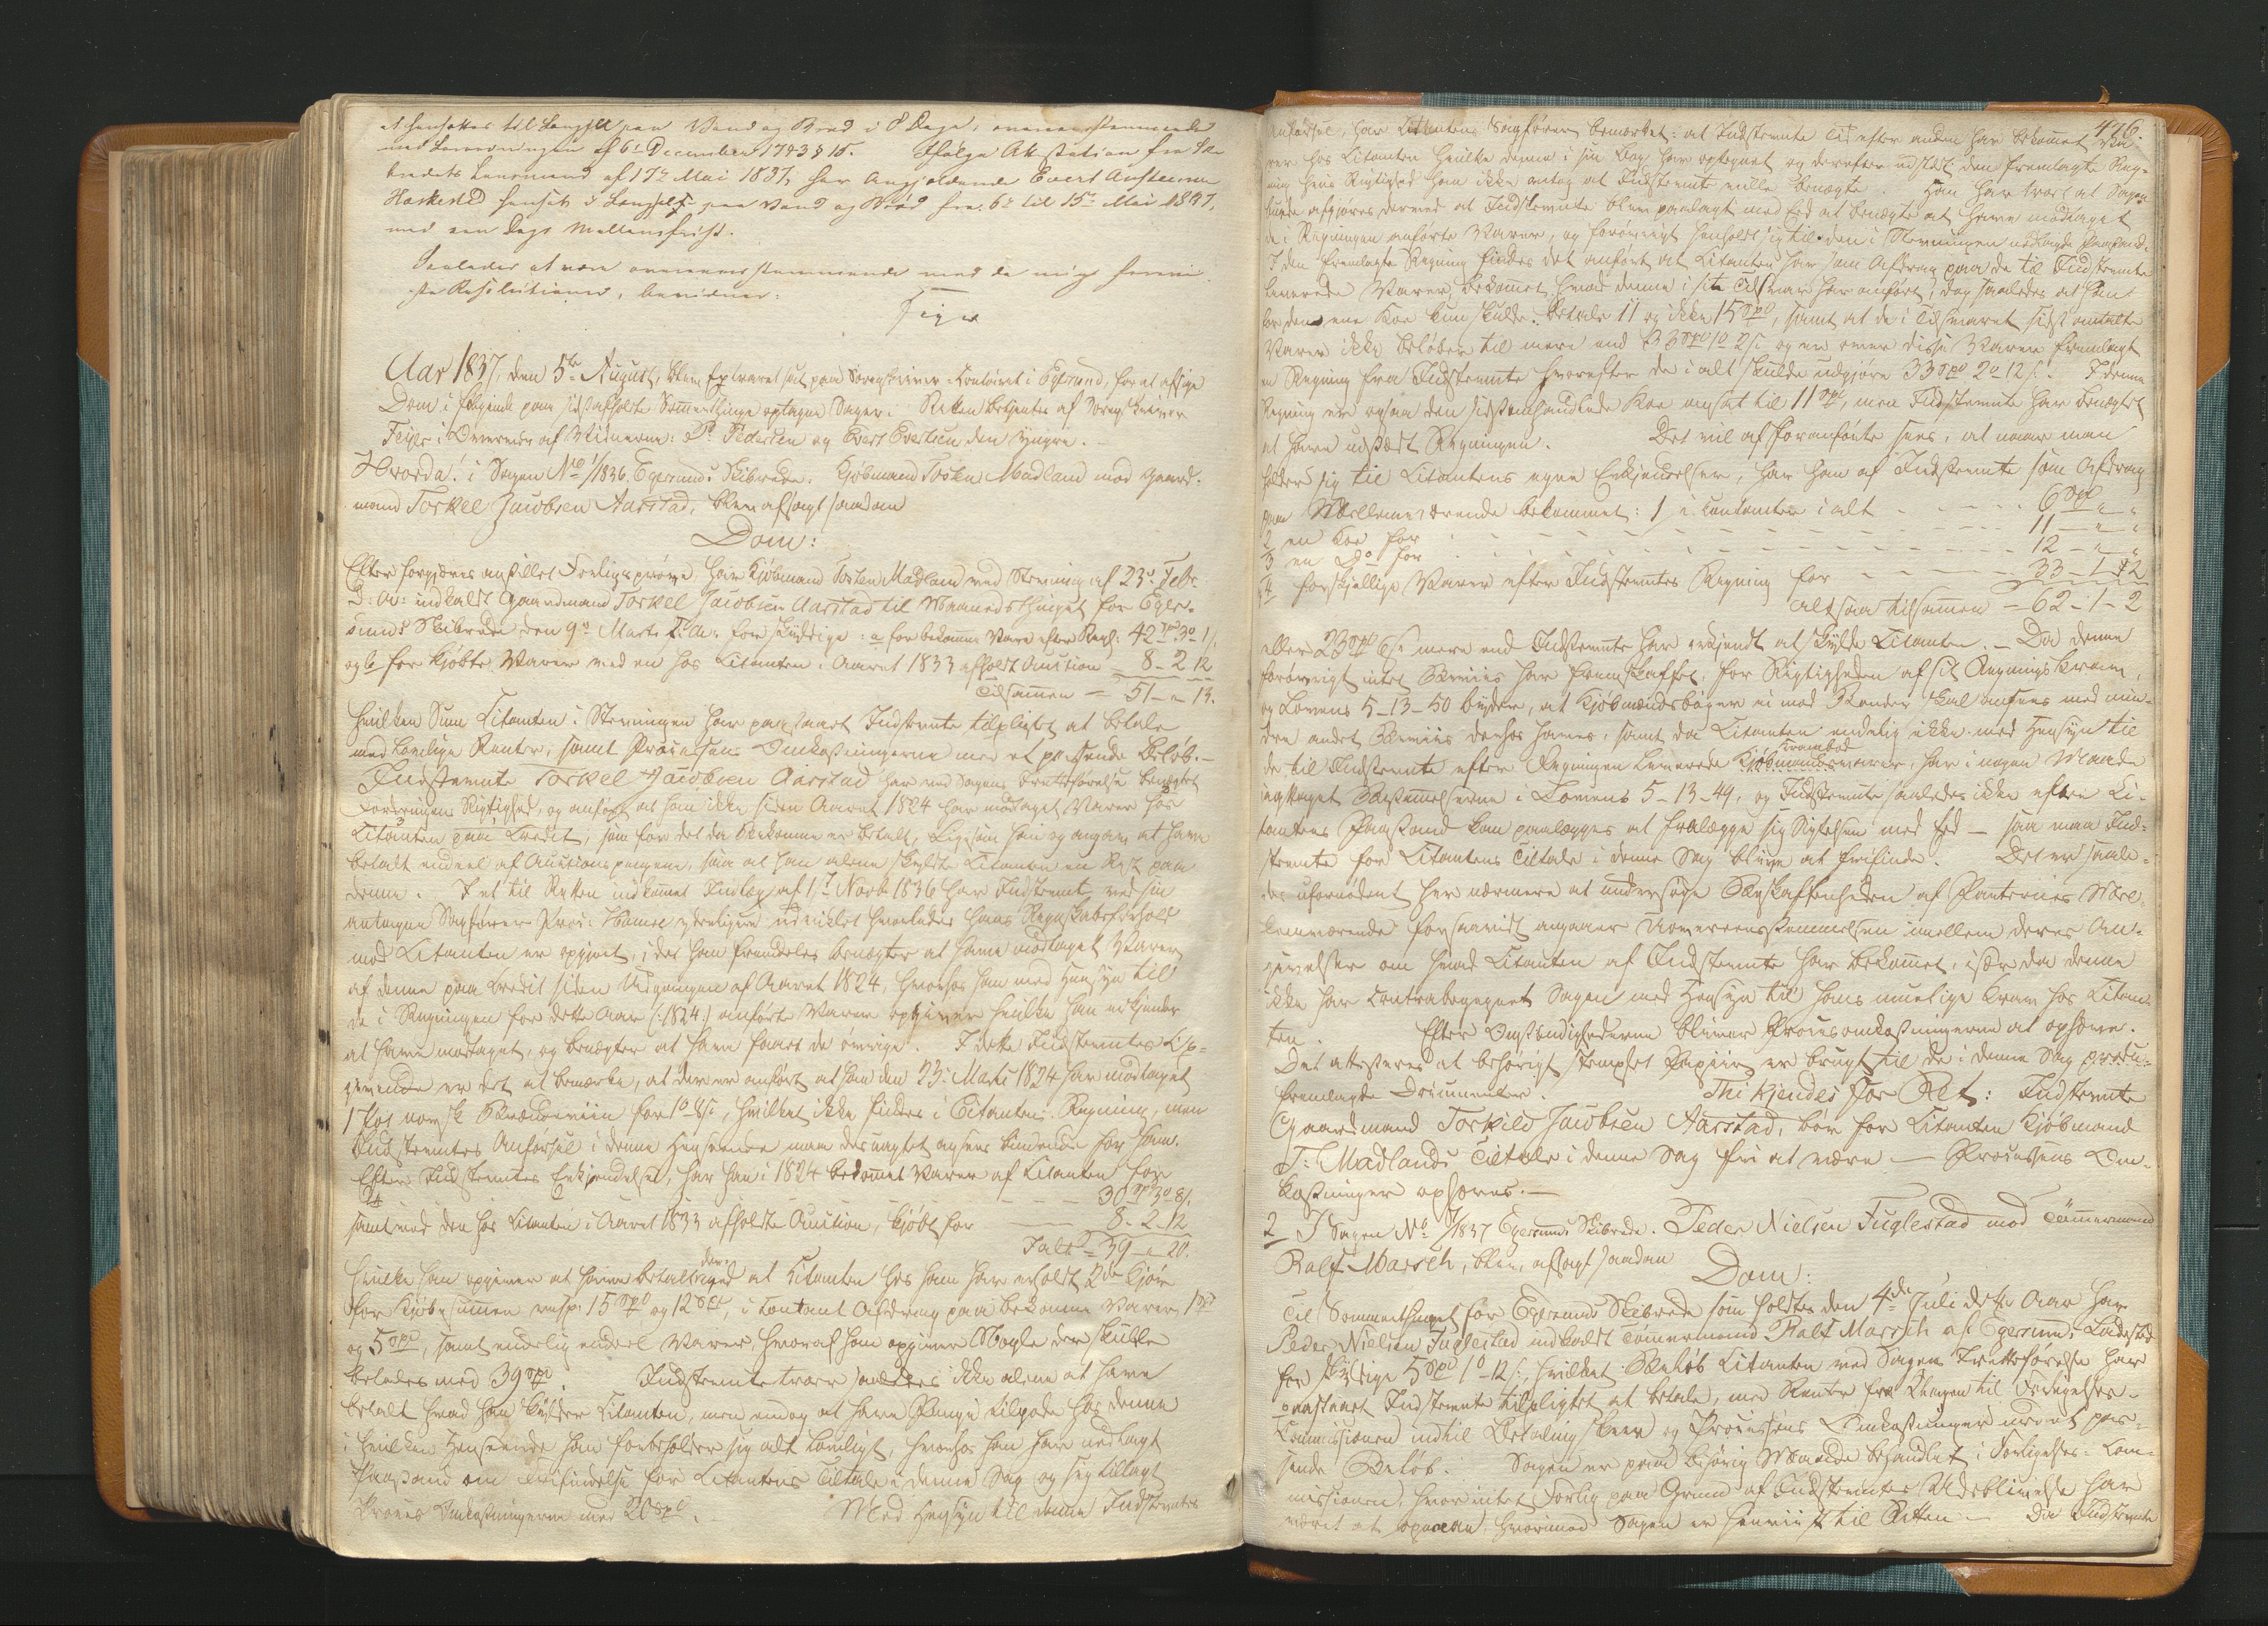 at hensættes til Fængsel paa Vand og Brød i 8 Dage, overensstemmende
med Forordningen af 6te December 1743 § 15. Ifølge Attestation fra Ski-
bredets Lensmand af 17de Mai 1837, har Angjældende Evert Austeensen
Haskested hensat i Fængslet paa Vand og Brød fra 6te til 15de Mai 1837,
med een Dags Mellemfrist.
Saaledes at være overeensstemmende med de mig foreviste
Resolutioner, bevidner:
Feyer
Aar 1837, den 5te August, blev Extraret sat paa Sorenskriver-Contoiret i Egersund, for at afsige
Dom i følgende paa sidstafholdte Sommerthinge optagne Sager. Retten betjentes af Sorenskriver
Feyer i Overvær af Vidnerne: P. Pedersen og Evert Evertsen den Yngre. -
Hvorda! i Sagen No 1/1836 Egersunds Skibrede. Kjøbmand Tosten Madland mod Gaard-
mand Torkel Jacobsen Aarstad, blev afsagt saadan
Dom:
Efter forgjæves anstillet Forligsprøve, har Kjøbmand Tosten Madland ved Stevning af 23de Febr.
d: A: indkaldt Gaardmand Torkel Jacobsen Aarstad til Maanedsthinget for Eger-
sunds Skibrede den 9de Marts f: A: for skyldige: a for bekomne Vare efter Regn: 42 Spd 3 o 1 s.
og b for kjøbte Varer ved en hos Citanten i Aaret 1833 afholdt Auction = 8 - 2 - 12
Tilsammen = 51 - " - 13.
Hvilken Sum Citanten i Stevningen har paastaaet Indstevnte tilpligtet at betale
med lovlige Renter, samt Processens Omkostningerne med et passende Beløb. -
Indstevnte Torkel Jacobsen Aarstad har ved Sagens Fremførelse benægtet
Fordringens Rigtighed, og anført at han ikke siden Aaret 1824 har modtaget Varer hos
Citanten paa Credit, som for det da Bekomne er betalt, ligesom han og angav at have
betalt endeel af Auctionspengene, saa at han alene skyldte Citanten en Rest paa
denne. I et til Retten indkommet Indlæg af 17 Novb. 1836 har Indstevnte ved sin
antagne Sagfører Proc: yderligere udviklet hvorledes hans Regnskabsforhold
mod Citanten er opgjort, i det han fremdeles benægter at have modtaget Varer
af denne paa Credit siden Udgangen af Aaret 1824, hvorhos han med Hensyn til
de i Regningen for dette Aar (: 1824:) anførte Varer opgiver hvilke han erkjender
at have modtaget, og benægter at have faaet de øvrige. I dette Indstevntes Op-
givende er det at bemærke, at der er anført at han den 23de Marts 1824 har modtaget
1 Pot norsk Brændeviin for 1 o 8 s, hvilket ikke findes i Citantens Regning, men
Indstevntes Anførsel i denne Henseende maa desuagtet ansees bindende for ham.
Efter Indstevntes Erkjendelse, har han i 1824 bekommet Varer af Citanten for
30 Spd 3 o 8 s.
samt ved den hos Citanten i Aaret 1833 afholdte Auction, kjøbt for 8 - 2 - 12
I alt = 39 - " - 20.
Hvilke han opgiver at have betalt derved at Citanten hos ham har erholdt 2de Kjør
for Kjøbesummen resp. 15 Spd og 12 Spd, i Contant Afdrag paa bekomne Varer 1 Spd
og 5 Spd, samt endelig endeel Varer, hvoraf han opgiver Nogle der skulle
beløbes med 39 Spd. Indstevnte troer saaledes ikke alene at have
betalt hvad han skylder Citanten, men endog at have Penge tilgode hos denne
i hvilken Henseende han forbeholder sig alt Lovligt, hvorhos han har nedlagt
Paastand om Frifindelse for Citantens Tiltale i denne Sag og sig tillagt
Proces Omkostningerne med 20 Spd. - Med Hensyn til denne Indstevntes
476.
Anførsel, har Citantens Sagfører bemærket: at Indstevnte Tid efter anden har bekommet Va-
rer hos Citanten hvilke denne i sin Bog har optegnet og derefter udstædt den fremlagte Reg-
ning hvis Rigtighed han ikke antog at Indstevnte ville benægte. Han har troet at Sagen
kunde afgjøres dermed at Indstevnte blev paalagt med Eed at benægte at have modtaget
de i Regningen anførte Varer, og forøvrigt henholdt sig til den i Stevningen nedlagde Paastand.
I den fremlagte Regning findes det anført at Citanten har som Afdrag paa de til Indstevnte
leverede Varer, bekommet hvad denne i sit Tilsvar har anført, dog saaledes at han
for den ene Koe kun skulde betale 11 og ikke 15 Spd, samt at de i Tilsvaret sidst omtalte
Varer ikke beløber til mere end 33 Spd 1 o 2 s. og en over disse Varer fremlagt
en Regning fra Indstevnte hvorefter de i alt skulde udgjøre 33 Spd 2 o 12 s. I denne
Regning er ogsaa den sidstomhandlede Koe ansat til 11 Spd, men Indstevnte har benægtet
at have udstædt Regningen. Det vil af Foranførte sees, at naar man
holder sig til Citantens egne Erkjendelser, har han af Indstevnte som Afdrag
paa Mellemværende bekommet: 1 i Contanter i alt - - - - 6 Spd " "
2 en Koe for - - - - 11 - " - "
3 en Do for - - - - 12 - " - "
4 forskjellige Varer efter Indstevntes Regning for - - - - 33 - 1 - 12
altsaa tilsammen - 62 - 1 - 2
eller 23 Spd 6 s. mere end Indstevnte har erkjendt at skylde Citanten. - Da denne
forøvrigt intet Beviis har fremskaffet, for Rigtigheden af sit Regnings Krav,
og Lovens 5-13-50 byder, at Kjøbmændsbøger ei mod Bønder skal ansees med min-
dre andet Beviis derhos haves, samt da Citanten endelig ikke med Hensyn til
de til Indstevnte efter Regningen leverede Krambod varer, har i nogen Maade
iagttaget Bestemmelserne i Lovens 5-13-49, og Indstevnte saaledes ikke efter Ci-
tantens Paastand kan paalægges at fralægge sig Sigtelsen med Eed - saa maa Ind-
stevnte for Citantens Tiltale i denne Sag blive at frifinde. Det er saale-
des ufornødent her nærmere at undersøge Beskaffenheden af Parternes Mel-
lemværende forsaavidt angaaer Uovereensstemmelsen imellem deres An-
givelser om hvad Citanten af Indstevnte har bekommet, især da denne
ikke har Contrabegegnet Sagen med Hensyn til hans muelige Krav hos Citan-
ten. Efter Omstændighederne bliver Procesomkostningerne at ophæve.
Det attesteres at behørigt stemplet Papiir er brugt til de i denne Sag
fremlagte Documenter. Thi kjendes for Ret: Indstevnte
Gaardmand Torkild Jacobsen Aarstad, bør for Citanten Kjøbmand
T. Madlands Tiltale i denne Sag fri at være. - Processens Om-
kostninger ophæves. -
2 I Sagen No 7/1837 Egersunds Skibrede. Peder Nielsen Fuglestad mod Tømmermand
Ralf Marsch, blev afsagt saadan
Dom:
Til Sommerthinget for Egersunds Skibrede som holdtes den 4de Juli dette Aar har
Peder Nielsen Fuglestad indkaldt Tømmermand Ralf Marsch af Egersunds Ladested
for skyldige 5 Spd 1 o - 12 s., hvilket Beløb Citanten ved Sagens Fremførelse har
paastaaet Indstevnte tilpligtet at betale, med Renter fra Klagen til Forligelses-
Commissionen indtil Betaling skeer og Processens Omkostninger med et pas-
sende Beløb. Sagen er paa behørig Maade behandlet i Forligelses-Com-
missionen, hvor intet Forlig paa Grund af Indstevntes Udeblivelse har
været at opnaae, hvorimod Sagen er henviist til Retten - Da Indstevnte